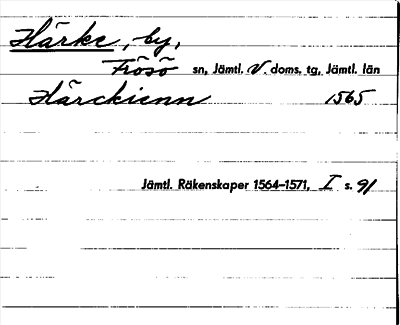 Härke, by,
Frösö sn, Jämtl. V. doms. tg, Jämtl. län
Härckienn 1565
Jämtl. Räkenskaper 1564-1571, I s. 91